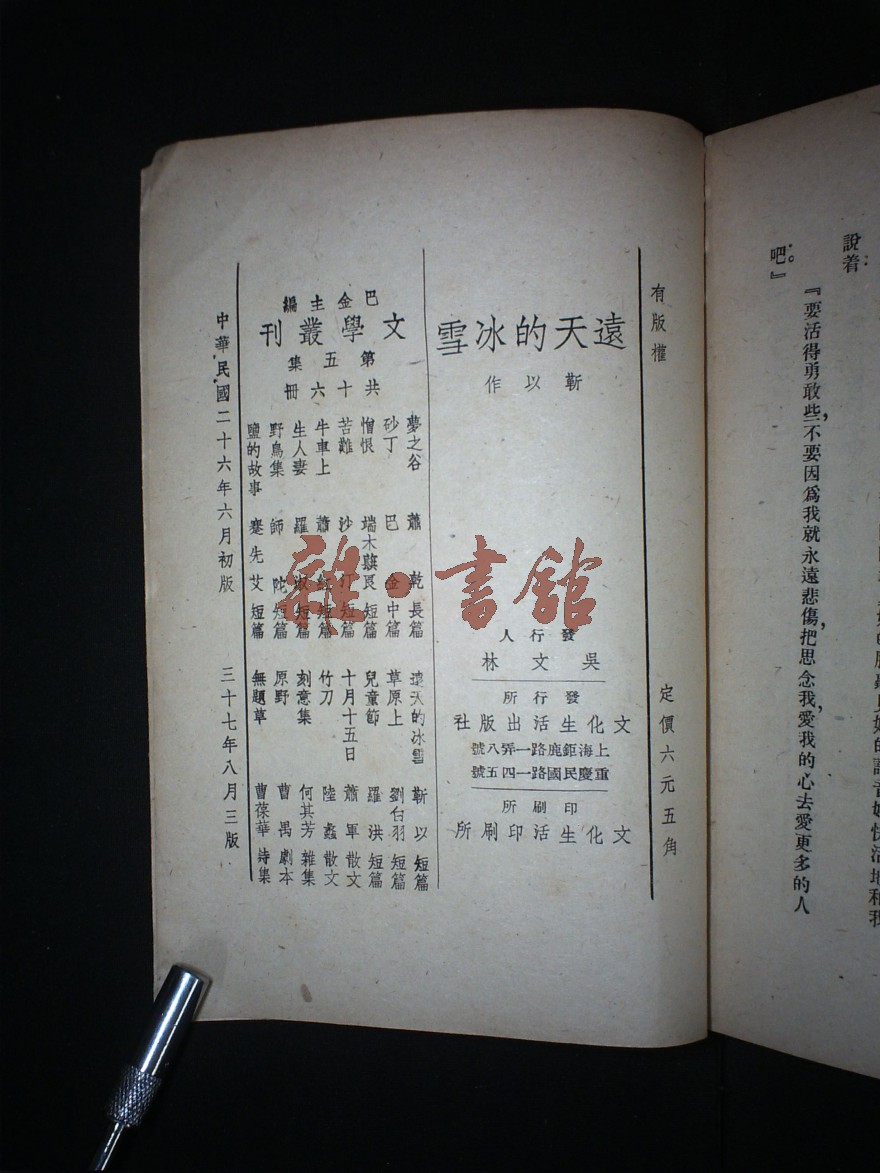 說着：
『要活得勇敢些，不要因爲我就永遠悲傷，把思念我，愛我的心去愛更多的人
吧。』
有版權
定價六元五角
遠天的冰雪
靳以作
發行人
吳文林
發行所
文化生活出版社
上海鉅鹿路一弄八號
重慶民國路一四五號
印刷所
文化生活印刷所
巴金主編
文學叢刊
第五集
共十六冊
夢之谷 蕭乾 長篇
砂丁 巴金 中篇
憎恨 端木蕻良 短篇
苦難 沙汀 短篇
牛車上 蕭紅 短篇
生人妻 羅淑 短篇
野鳥集 師陀 短篇
鹽的故事 蹇先艾 短篇
遠天的冰雪 靳以 短篇
草原上 劉白羽 短篇
兒童節 羅洪 短篇
十月十五日 蕭軍 散文
竹刀 陸蠡 散文
刻意集 何其芳 雜集
原野 曹禺 劇本
無題草 曹葆華 詩集
中華民國二十六年六月初版
三十七年八月三版
雜·書館